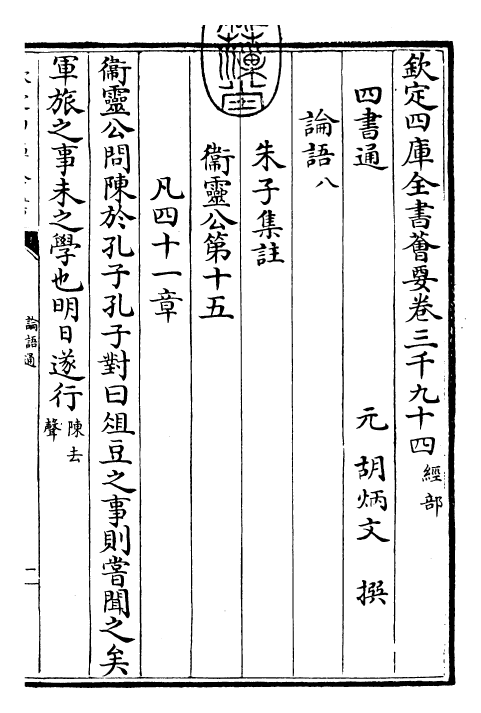 欽定四庫全書薈要卷三千九十四 經部
四書通 元 胡炳文 撰
論語八
朱子集註
衞靈公第十五
凡四十一章
衞靈公問陳於孔子孔子對曰俎豆之事則嘗聞之矣
軍旅之事未之學也明日遂行 陳去聲
論語通